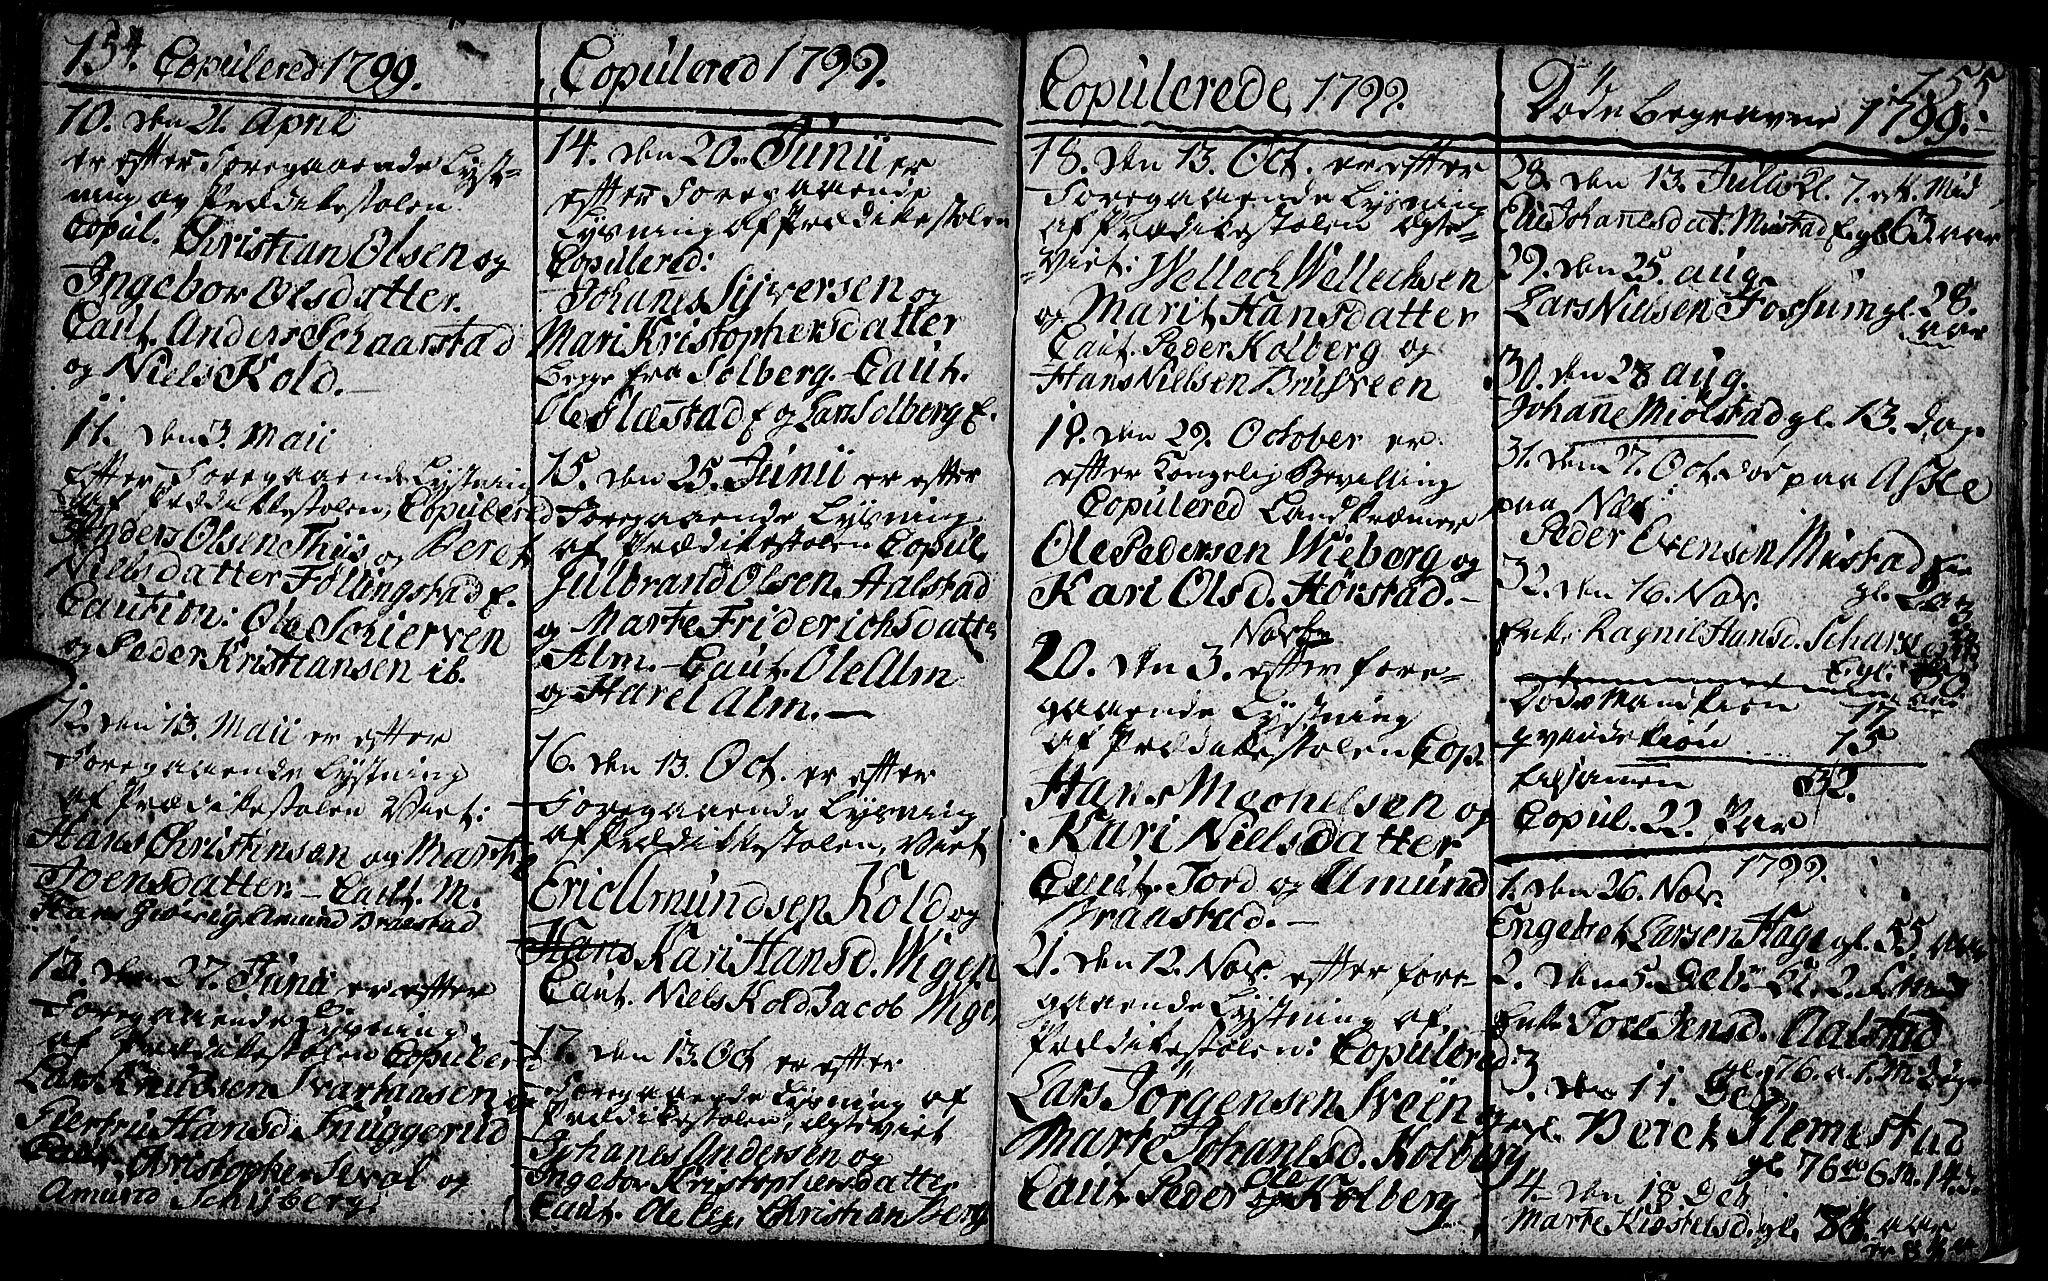 154. Copulered 1799.
10. den 21. April
er efter Foregaaende Lyst-
ning av Prædikestolen
Copul. Christian Olsen og
Ingebor Olsdatter.
Caut. Anders Schaarstad
og Niels Kold.—
11. den 3. Maii
Efter Foregaaende Lystning
af Prædikkestolen, Copulered
Anders Olsen Thiis og Beret
Nielsdatter Follingstad E.
Caution: Ole Schierven
og Peder Kristiansen ib.
12. den 13. Maii er efter
Foregaaende Lystning
af Prædikestolen Viet:
Hans Christinsen og Marthe
Joensdatter.— Caut. M.
Hans Amund Braastad
13. den 27. Junii er efter
Foregaaende Lysning
af Prædikestolen Copulered
Lars Knudsen Svarhaasen og
Giertru Hansd. Snuggerud
Caut. Christopher Seval og
Amund Schiberg.
Copulered 1799.
14. den 20. Junii er
efter Foregaaende
Lysning af Prædikestolen
Copulered:
Johanes Syversen og
Mari Kristophersdatter
begge fra Solberg. Caut.
Ole Slæstad E og Lars Solberg E.
15. den 25. Junii er efter
Foregaaende Lysning
af Prædikestolen Copul.
Gulbrand Olsen Aalstad
og Marte Friderichsdatter
Alm.— Caut. Ole Alm
og Harel Alm.—
16. den 13. Oct. er efter
Foregaaende Lysning
af Prædikkestolen, Viet
Eric Amundsen Kold og
Kari Hansd. Wigen
Caut. Niels Kold Jacob Wigen
17. den 13. Oct er efter
Foregaaende Lysning af
Prædikestolen, ægteviet
Johanes Andersen og
Ingebor Kristophersdatter
Caut. Ole Eeg, Christian Berg
Copulerede, 1799.
18. den 13. Oct. er efter
Foregaaende Lysning
af Prædikestolen ægte-
Viet: Wellech Wellechsen
og Marit Hansdatter
Caut. Peder Kolberg og
Hans Nielsen Brusveen
19. den 29. October er
efter Kongelig Bevilling
Copulered Landkræmer
Ole Pedersen Wieborg og
Kari Olsd. Hørstad.—
20. den 3. Novbr efter fore-
gaaende Lystning
af Prædikestolen Cop.
Hans Mechelsen og
Kari Nielsdatter
Caut. Tord og Amund
Braastad.—
21. den 12. Nov. efter fore-
gaaende Lystning af
Prædikestolen: Copulered:
Lars Jørgensen Sveen og
Marte Johanesd. Kolberg
Caut. Peder Ole Kolberg
155
Døde begravne 1799.—
28. den 13. Julii
Johanesdat. Mustad E. gl. 63. aar
29. den 25. aug.
Lars Nielsen Fossum gl. 28.
aar
30. den 28 aug.
Johane Miølstad gl. 13. dage
31. den 27. Oct. død paa
paa Næs
Peder Evensen Mustad
32. den 16. Nov.
Enke Ragnil Hansd.
Døde Mandkiøn 17
Qvindekiøn .... 15
tilsamen 32.
Copul. 22. Par
1799.
1. den 26. Nov.
Engebret Larsen Hage gl. 55 aar
2. den 5. Deb.
Enke Tore Jensd. Aalstad
gl. 76. a. 1. M. Dage
3. den 11. Deb
Beret Slemstad
gl. 76 a 6. M. 14. D.
4. den 18 Deb
Marte Kiøstelsd. gl. aar